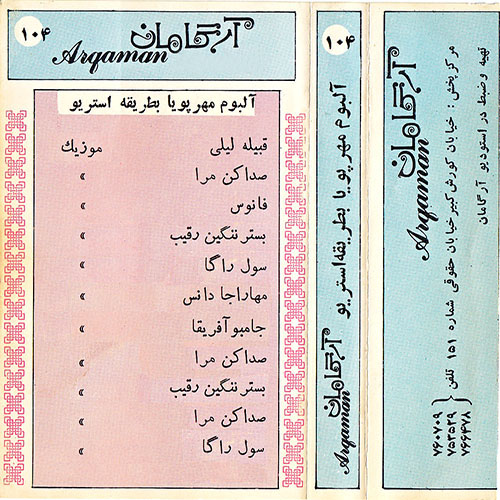 ۱۰۴
آرگامان
Arqaman
آلبوم مهرپویا بطریقه استریو
قبیله لیلی موزیك
صداکن مرا »
فانوس »
بستر ننگین رقیب »
سول راگا »
مهاراجا دانس »
جامبو آفریقا »
صداکن مرا »
بستر ننگین رقیب »
صداکن مرا »
سول راگا »
۱۰۴
آلبوم مهرپویا بطریقه استریو
آرگامان
Arqaman
آرگامان
Arqaman
تهیه وضبط در استودیو آرگامان
مرکز پخش: خیابان کورش کبیر خیابان حقوقی شماره ۱۵۱ تلفن
۷۶۰۷۰۹
۷۵۳۵۲۹
۷۶۶۴۷۸